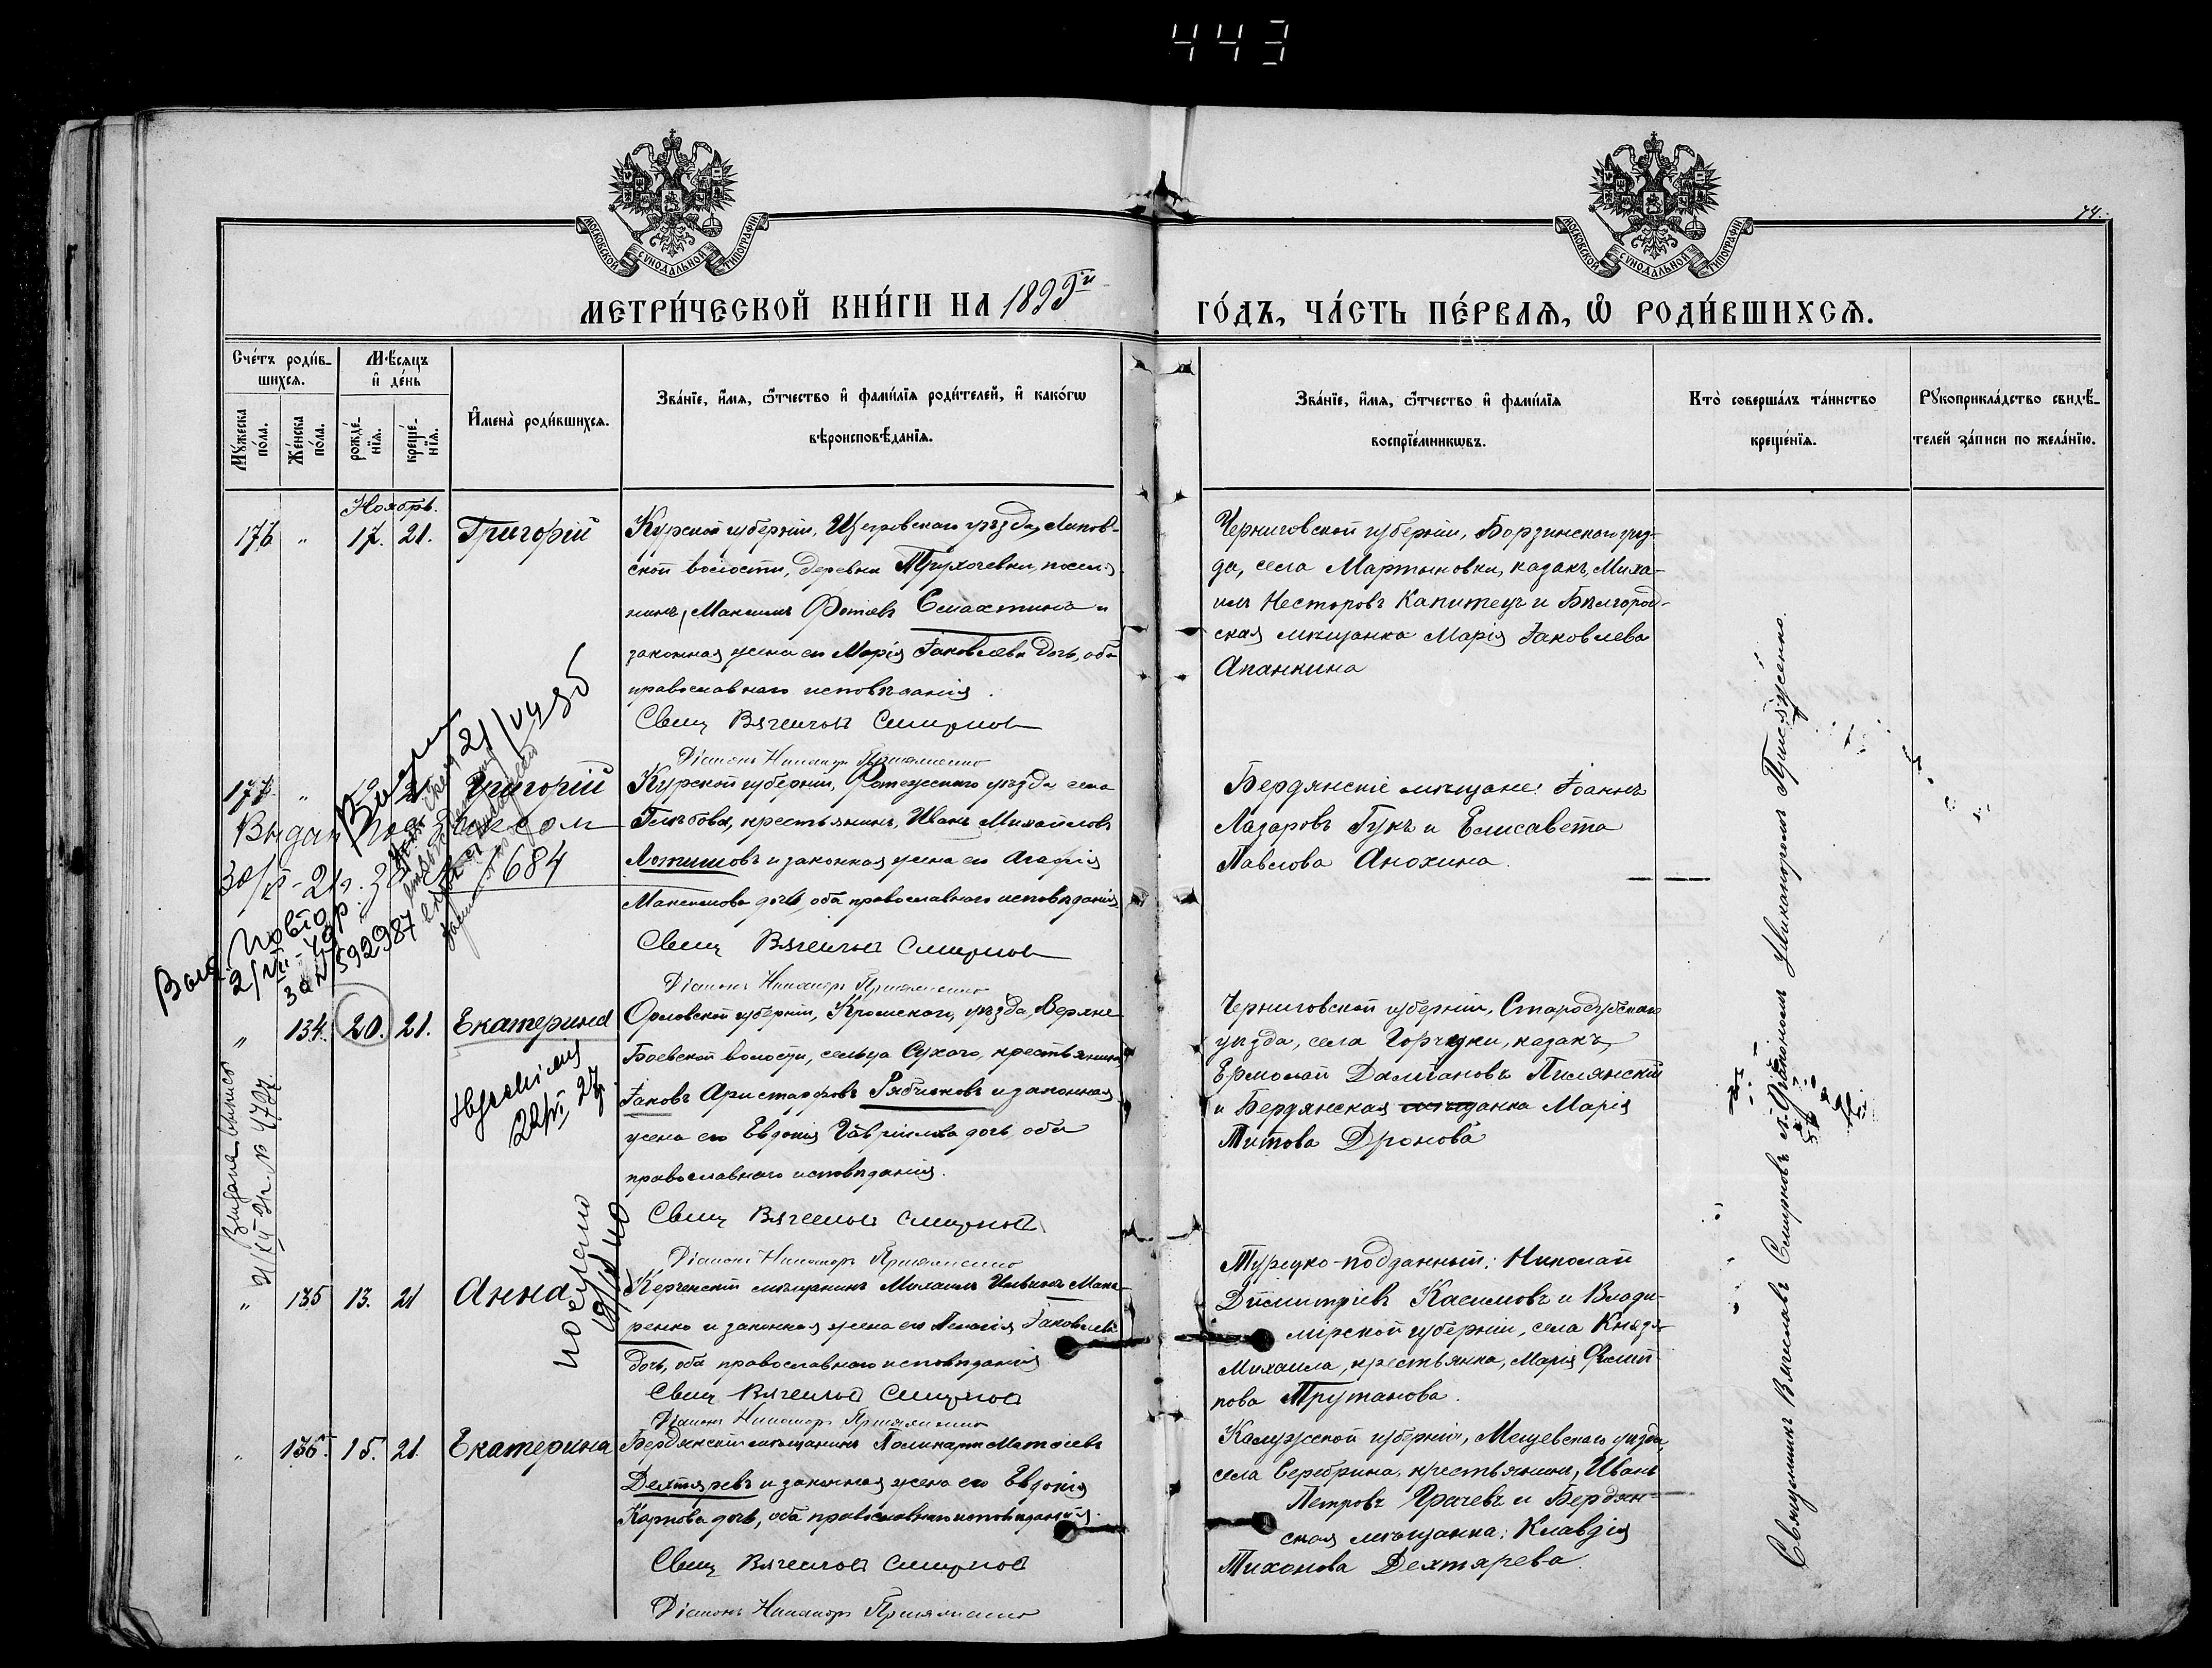 443
МОСКОВСКОЙ СѴНОДАЛЬНОЙ ТИПОГРАФІИ
МОСКОВСКОЙ СѴНОДАЛЬНОЙ ТИПОГРАФІИ
74.
МЕТРИ́ЧЕСКОЙ КНИ́ГИ НА 1899й
ГО́ДЪ, ЧА́СТЬ ПЕ́РВАѦ, Ѡ҆ РОДИ́ВШИХСѦ.
Сче́тъ роди́в-
шихсѧ.
Мѣ́сѧцъ
и҆ де́нь
Мꙋ́жеска по́ла.
Же́нска по́ла.
рожде́-
нїѧ.
креще́-
нїѧ.
И҆мена̀ роди́вшихсѧ.
Зва́нїе, и҆́мѧ, ѻ҆́тчество и҆ фами́лїѧ роди́телей, и҆ како́гѡ
вѣроисповѣ́данїѧ.
Зва́нїе, и҆́мѧ, ѻ҆́тчество и҆ фами́лїѧ
воспрїе́мникѡвъ.
Кто̀ соверша́лъ та́инство
креще́нїѧ.
Рꙋкоприкла́дство свидѣ́-
телей за́писи по жела́нїю.
Ноябрь.
176 " 17. 21. Григорій
Курской губерніи, Щигровскаго уѣзда, Липов-
ской волости, деревни
Максимъ Фотіевъ
законная жена его Марія Іаковлева дочь, оба
православнаго исповѣданія.
Свящ Вячеславъ Смирновъ
Діаконъ Никаноръ
Черниговской губерніи, Борзинскаго уѣз-
да, села Мартыновки, казакъ, Миха-
илъ Несторовъ Капитец и Бѣлгород-
ская мѣщанка Марія Іаковлева
Апанкина
177. " Григорій
Курской губерніи, Фатежскаго уѣзда села
Глѣбова, крестьянинъ, Иванъ Михайловъ
и законная жена его Агафія
Максимова дочь, оба православнаго исповѣданія.
Свящ Вячеславъ Смирновъ
Діаконъ Никаноръ
Бердянскіе мѣщане: Іоаннъ
Лазаровъ Гукъ и Елисавета
Павлова Анохина.
Выдан
684
повтор.
592987
" 134. 20. 21. Екатерина
Орловской губерніи, Кромскаго, уѣзда, Верхне-
Боевской волости, сельца Сухого, крестьянинъ
Іаковъ Аристарховъ Рябчиковъ и законная
жена его Евдокія Гавріилова дочь, оба
православнаго исповѣданія.
Свящ Вячеславъ Смирновъ
Діаконъ Никаноръ
Черниговской губерніи, Стародубскаго
уѣзда, села казакъ,
Ермолай Даміановъ Пилянскій
и Бердянская мѣщанка Марія
Титова Дронова
Выдана выпись
№ 4797.
" 135 13. 21 Анна
Керченскій мѣщанинъ Михаилъ Ильинъ Мака-
ренко и законная жена его Пелагія Іаковлева
дочь, оба православнаго исповѣданія
Свящ Вячеславъ Смирновъ
Діаконъ Никаноръ
Турецко-подданный: Николай
Димитріевъ Касимовъ и Влади-
мірской губерніи, села Князь-
Михаила, крестьянка, Марія Филип-
пова Трутанова.
" 136. 15. 21. Екатерина
Бердянскій мѣщанинъ Поликарпъ Матѳіевъ
Дехтяревъ и законная жена его Евдокія
Карпова дочь, оба православнаго исповѣданія.
Свящ Вячеславъ Смирновъ
Діаконъ Никаноръ
Калужской губерніи, Мещевскаго уѣзда,
села Серебрина, крестьянинъ, Иванъ
Петровъ Грачевъ и Бердян-
ская мѣщанка: Клавдія
Тихонова Дехтярева.
Священникъ Вячеславъ Смирновъ Діакономъ Никаноромъ